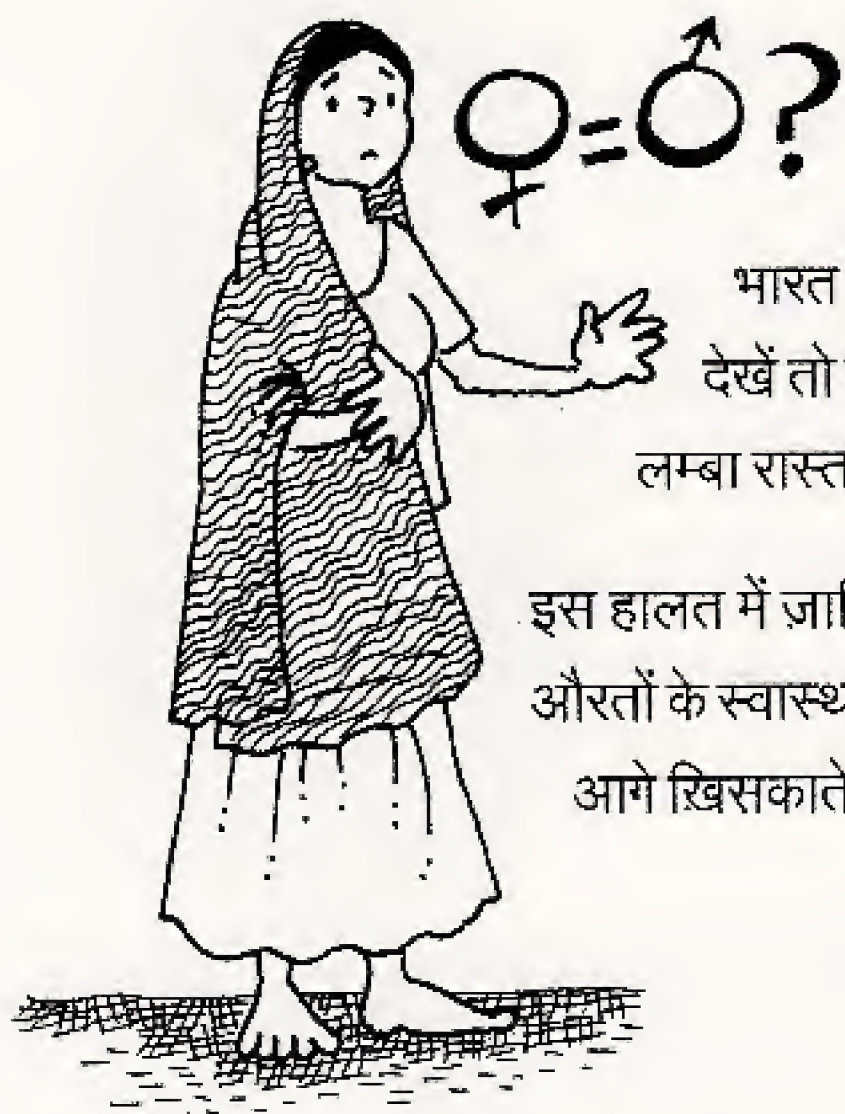 ♀=♂?
भारत
देखें तो
लम्बा रास्त
इस हालत में ज़ा
औरतों के स्वास्थ
आगे ख़िसकाते